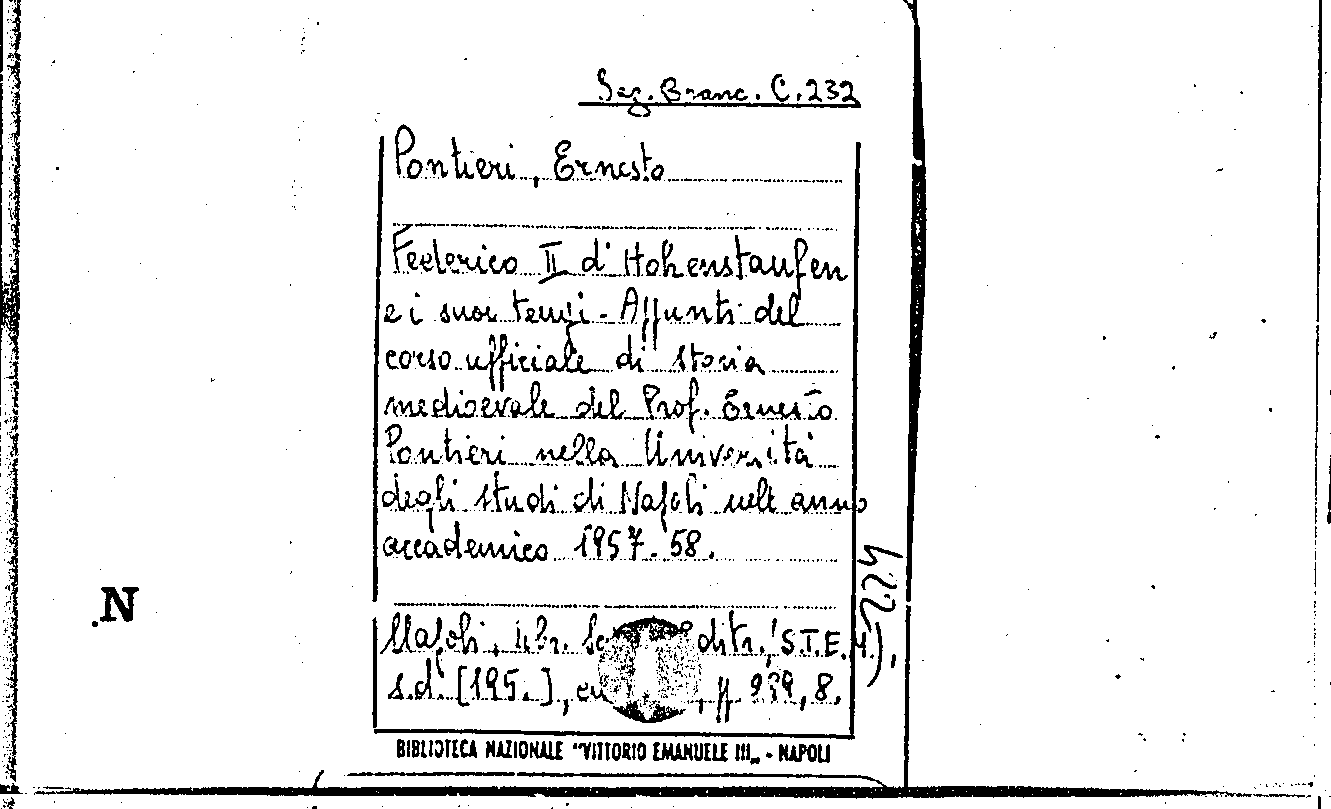 Sez. Branc. C. 232
Pontieri, Ernesto
Federico II d'Hohenstaufen
e i suoi tempi - Appunti del
corso ufficiale di storia
medioevale del Prof. Ernesto
Pontieri nella Università
degli studi di Napoli nell'anno
accademico 1957-58.
Napoli, Libr. S.T.E.M.),
s.d. [195.], pp. 8.
BIBLIOTECA NAZIONALE "VITTORIO EMANUELE III„ - NAPOLI
N